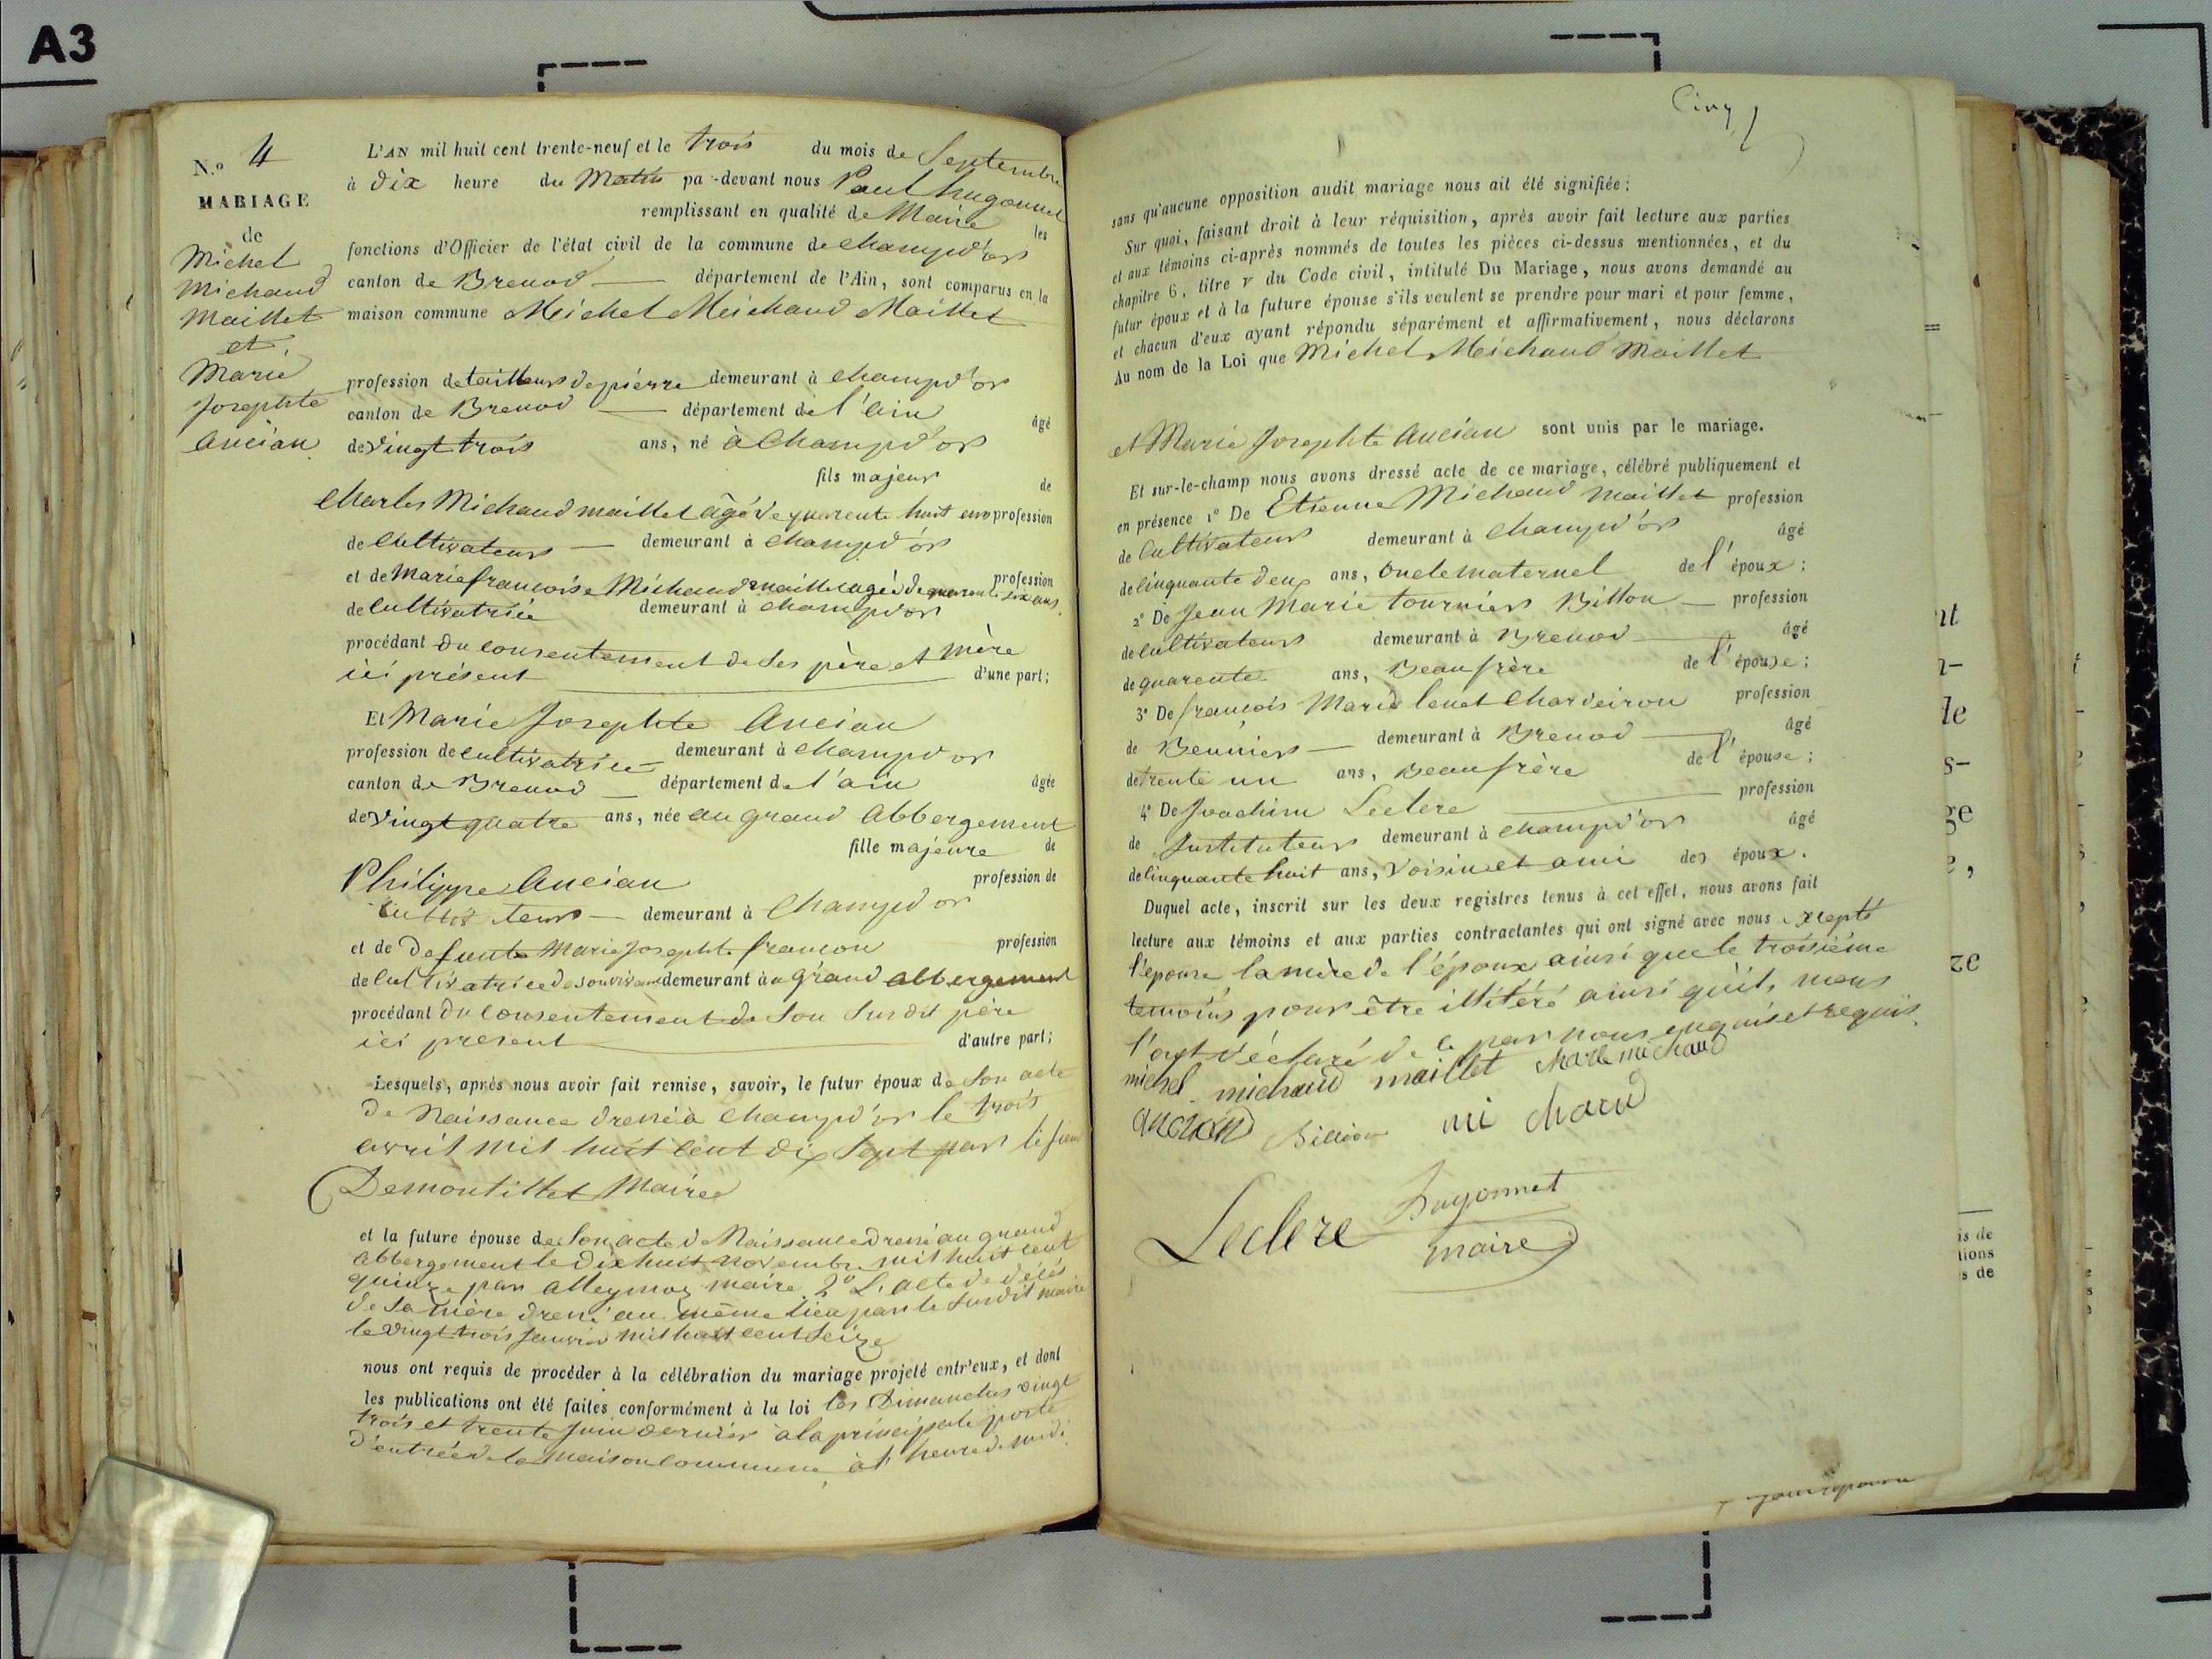 A3
N.o 4
MARIAGE
de
Michel
Michaud
Maillet
et
Marie
Josephte
Ancian
L'AN mil huit cent trente-neuf et le trois du mois de Septembre
à dix heure du Matin pa -devant nous Paul hugonnet
remplissant en qualité de Maire les
fonctions d'Officier de l'état civil de la commune de Champd'or
canton de Brenod — département de l'Ain, sont comparus en la
maison commune Michel Michaud Maillet
profession de tailleur de pierre demeurant à Champd'or
canton de Brenod — département de l'ain âgé
de vingt trois ans, né à Champd'or
fils majeur de
Charles Michaud maillet âgé de quarente huit ans profession
de Cultivateur — demeurant à Champd'or
et de Marie francoise Michaud maillet agée de quarente six ans profession
de Cultivatrice demeurant à Champd'or
procédant du consentement de ses père et mère
ici présent — d'une part;
Et Marie Josephte Ancian
profession de cultivatrice demeurant à Champd'or
canton de Brenod — département de l'ain âgée
de vingt quatre ans, née au grand Abbergement
fille majeure de
Philippe Ancian profession de
teur — demeurant à Champd'or
et de Defunte Marie Josephte francon profession
de Cultivatrice de son vivant demeurant au grand abbergement
procédant du consentement de son susdit père
ici present — d'autre part;
Lesquels, après nous avoir fait remise, savoir, le futur époux de son acte
de Naissance dressé à Champd'or le trois
avril mil huit cent dix sept par le sieur
Demontillet Maire
et la future épouse de son acte de Naissance dressé au grand
abbergement le dix huit novembre mil huit cent
quinze par maire 2o L'acte de décès
de sa mère dressé au même lieu par le susdit maire
le vingt trois Janvier mil huit cent seize
nous ont requis de procéder à la célébration du mariage projeté entr'eux, et dont
les publications ont été faites conformément à la loi les Dimanches vingt
trois et trente Juin dernier à la principale porte
d'entrée de la Maison commune, à l'heure de midi
Cinq
sans qu'aucune opposition audit mariage nous ait été signifiée;
Sur quoi, faisant droit à leur réquisition, après avoir fait lecture aux parties
et aux témoins ci-après nommés de toutes les pièces ci-dessus mentionnées, et du
chapitre 6, titre V du Code civil, intitulé Du Mariage, nous avons demandé au
futur époux et à la future épouse s'ils veulent se prendre pour mari et pour femme,
et chacun d'eux ayant répondu séparément et affirmativement, nous déclarons
Au nom de la Loi que Michel Michaud Maillet
et Marie Josephte Ancian sont unis par le mariage.
Et sur-le-champ nous avons dressé acte de ce mariage, célébré publiquement et
en présence 1o De Etienne Michaud Maillet profession
de Cultivateur demeurant à Champd'or âgé
de Cinquante deux ans, Oncle maternel de l'époux;
2o De Jean Marie tournier Billon — profession
de cultivateur demeurant à Brenod — âgé
de quarente ans, Beaufrère de l'épouse;
3o De françois Marie profession
de — demeurant à Brenod — âgé
de trente un ans, Beaufrère de l'épouse;
4o De Joachim Leclere — profession
de Instituteur demeurant à Champd'or âgé
de Cinquante huit ans, Voisin et ami des époux.
Duquel acte, inscrit sur les deux registres tenus à cet effet, nous avons fait
lecture aux témoins et aux parties contractantes qui ont signé avec nous excepté
l'épouse la mère de l'époux ainsi que le troisième
temoins pour être illitéré ainsi qu'ils nous
l'ont déclaré de ce par nous enquis et requis.
michel michaud maillet Charle michaud
ancian Billion mi chaud
Leclere hugonnet
maire
nt
le
s-
ge
ze
is de
tions
s de